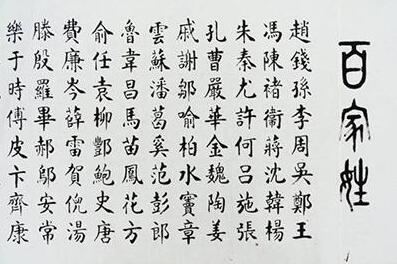 百家姓
趙錢孫李周吳鄭王
馮陳褚衞蔣沈韓楊
朱秦尤許何吕施張
孔曹嚴華金魏陶姜
戚謝鄒喻柏水竇章
雲蘇潘葛奚范彭郎
魯韋昌馬苗鳳花方
俞任袁柳酆鮑史唐
費廉岑薛雷賀倪湯
滕殷羅畢郝鄔安常
樂于時傅皮卞齊康